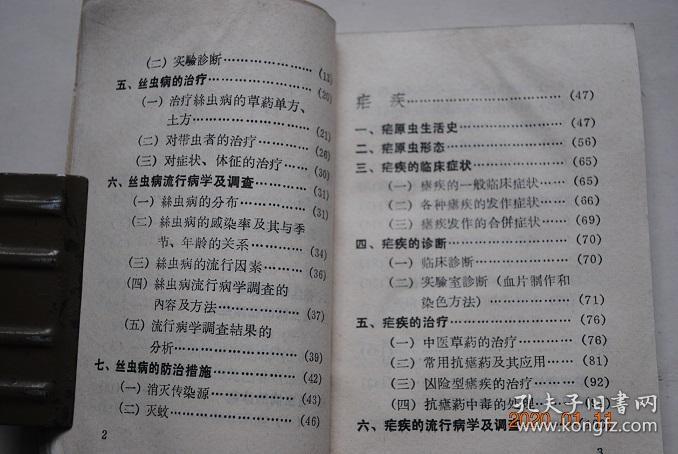 （二）实驗診断 (13)
五、丝虫病的治疗 (20)
（一）治疗絲虫病的草葯单方、
土方 (21)
（二）对带虫者的治疗 (26)
（三）对症状、体征的治疗 (30)
六、丝虫病流行病学及调查 (31)
（一）絲虫病的分布 (31)
（二）絲虫病的感染率及其与季
节、年龄的关系 (34)
（三）絲虫病的流行因素 (36)
（四）絲虫病流行病学調查的
內容及方法 (37)
（五）流行病学調查結果的
分析 (39)
七、丝虫病的防治措施 (42)
（一）消灭传染源 (43)
（二）灭蚊 (46)
2
疟疾 (47)
一、疟原虫生活史 (47)
二、疟原虫形态 (56)
三、疟疾的临床症状 (65)
（一）瘧疾的一般临床症状 (65)
（二）各种瘧疾的发作症状 (66)
（三）瘧疾发作的合併症状 (69)
四、疟疾的诊断 (70)
（一）临床診断 (70)
（二）实驗室診断（血片制作和
染色方法） (71)
五、疟疾的治疗 (76)
（一）中医草葯的治疗 (76)
（二）常用抗瘧葯及其应用 (81)
（三）凶险型瘧疾的治疗 (92)
（四）抗瘧葯中毒的处理
六、疟疾的流行病学及调查
3
2020 01 11
孔夫子旧书网
kongfz.com